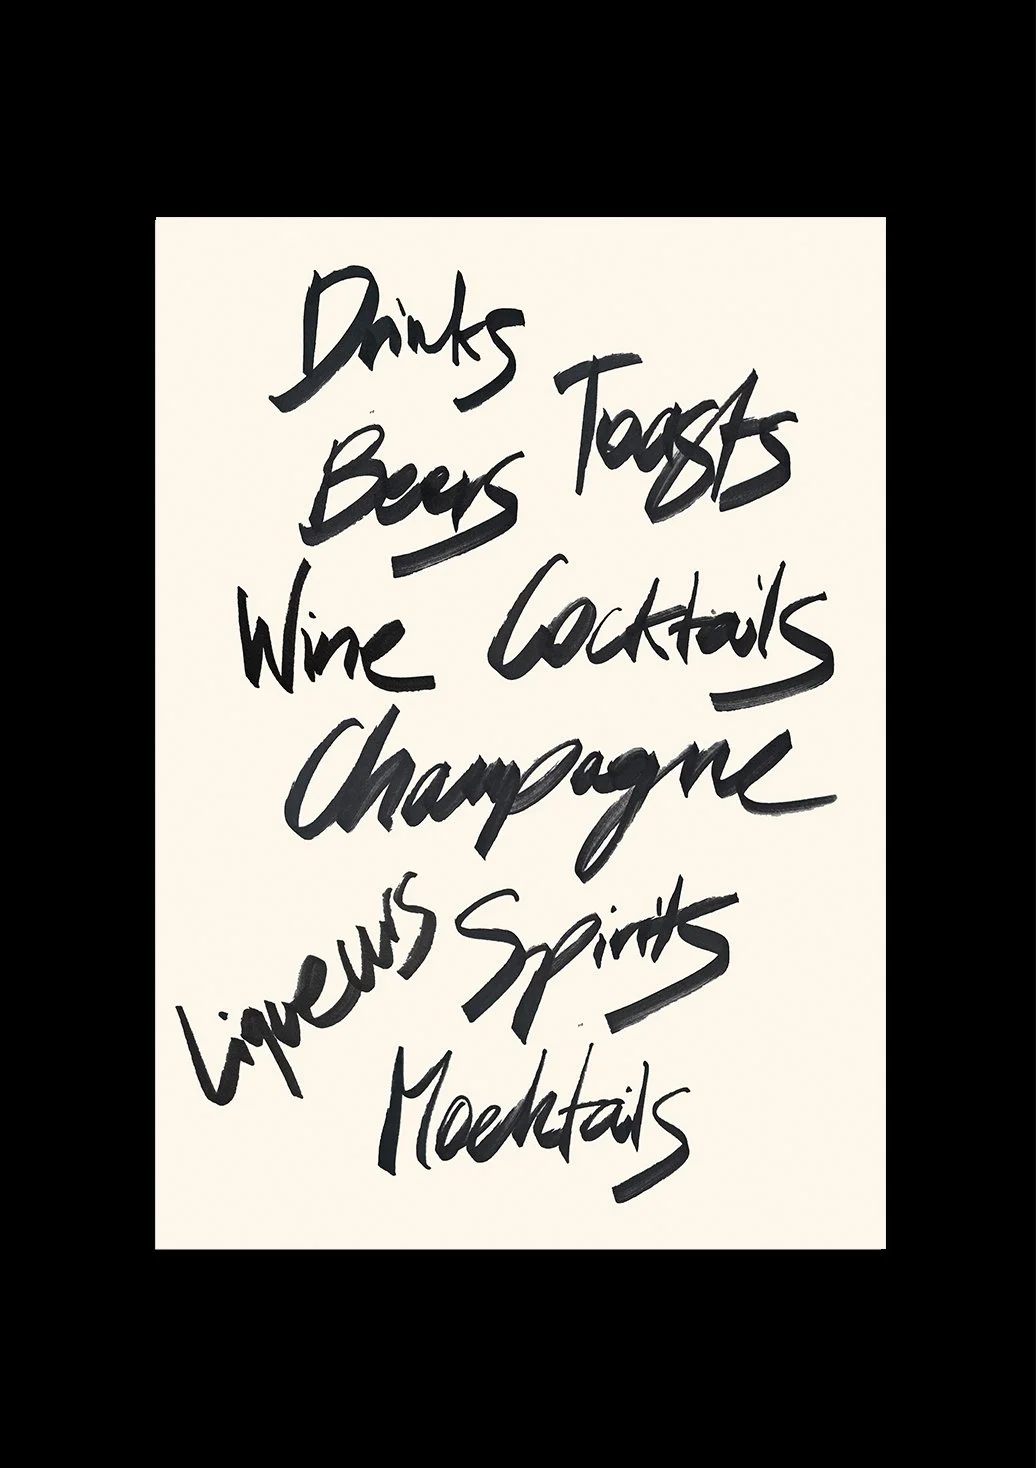 Drinks
Toasts
Beers
Wine Cocktails
Champagne
Liqueurs
Spirits
Mocktails